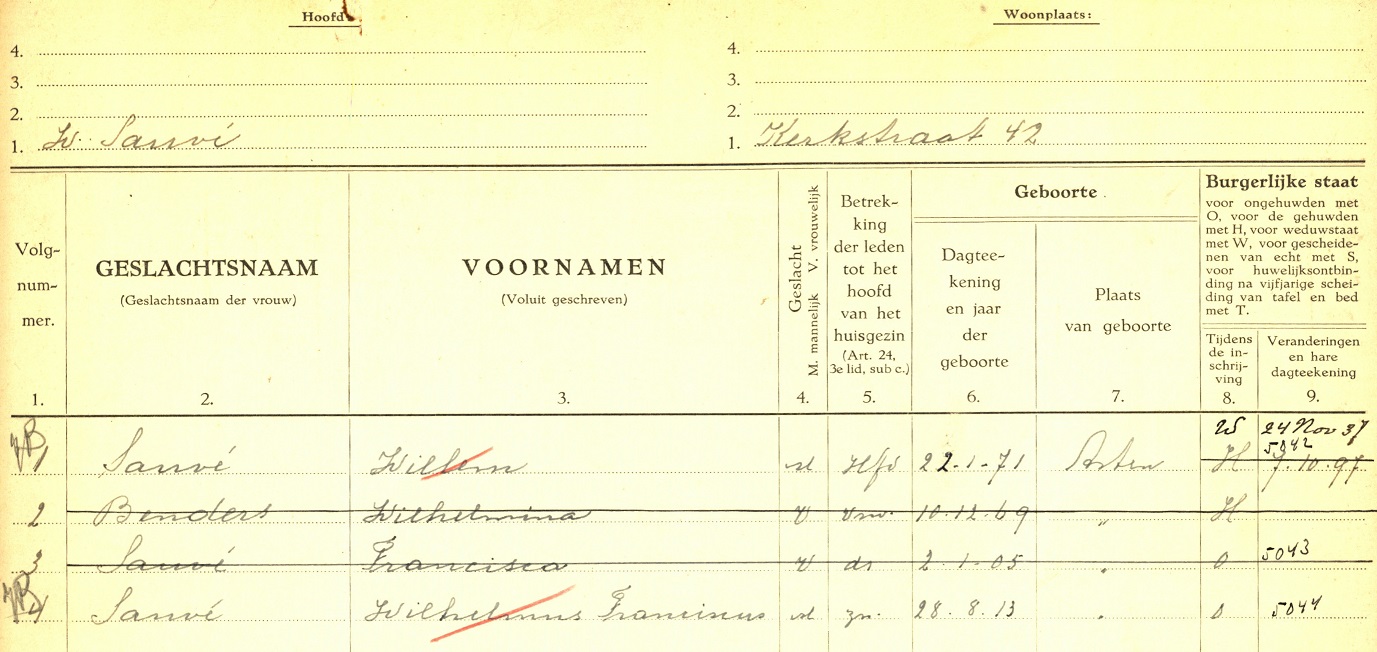 Hoofd Woonplaats:
4. 4.
3. 3.
2. 2.
1. W. Sauvé 1. Kerkstraat 42
Volg-
num-
mer.
GESLACHTSNAAM
(Geslachtsnaam der vrouw)
VOORNAMEN
(Voluit geschreven)
Geslacht
M. mannelijk V. vrouwelijk
Betrek-
king
der leden
tot het
hoofd
van het
huisgezin
(Art. 24,
3e lid, sub c.)
Geboorte
Dagtee-
kening
en jaar
der
geboorte
Plaats
van geboorte
Burgerlijke staat
voor ongehuwden met
O, voor de gehuwden
met H, voor weduwstaat
met W, voor gescheide-
nen van echt met S,
voor huwelijksontbin-
ding na vijfjarige schei-
ding van tafel en bed
met T.
Tijdens
de in-
schrij-
ving
Veranderingen
en hare
dagteekening
1. 2. 3. 4. 5. 6. 7. 8. 9.
W 24 Nov 37
5042
1 Sauvé Willem M Hfd 22-1-71 Asten H 7.10.97
2 Benders Wilhelmina V vrw. 10.12.69 " H
3 Sauvé Francisca V dr 2-1-05 " O 5043
4 Sauvé Wilhelmus Franciscus M zn. 28.8.13 " O 5044